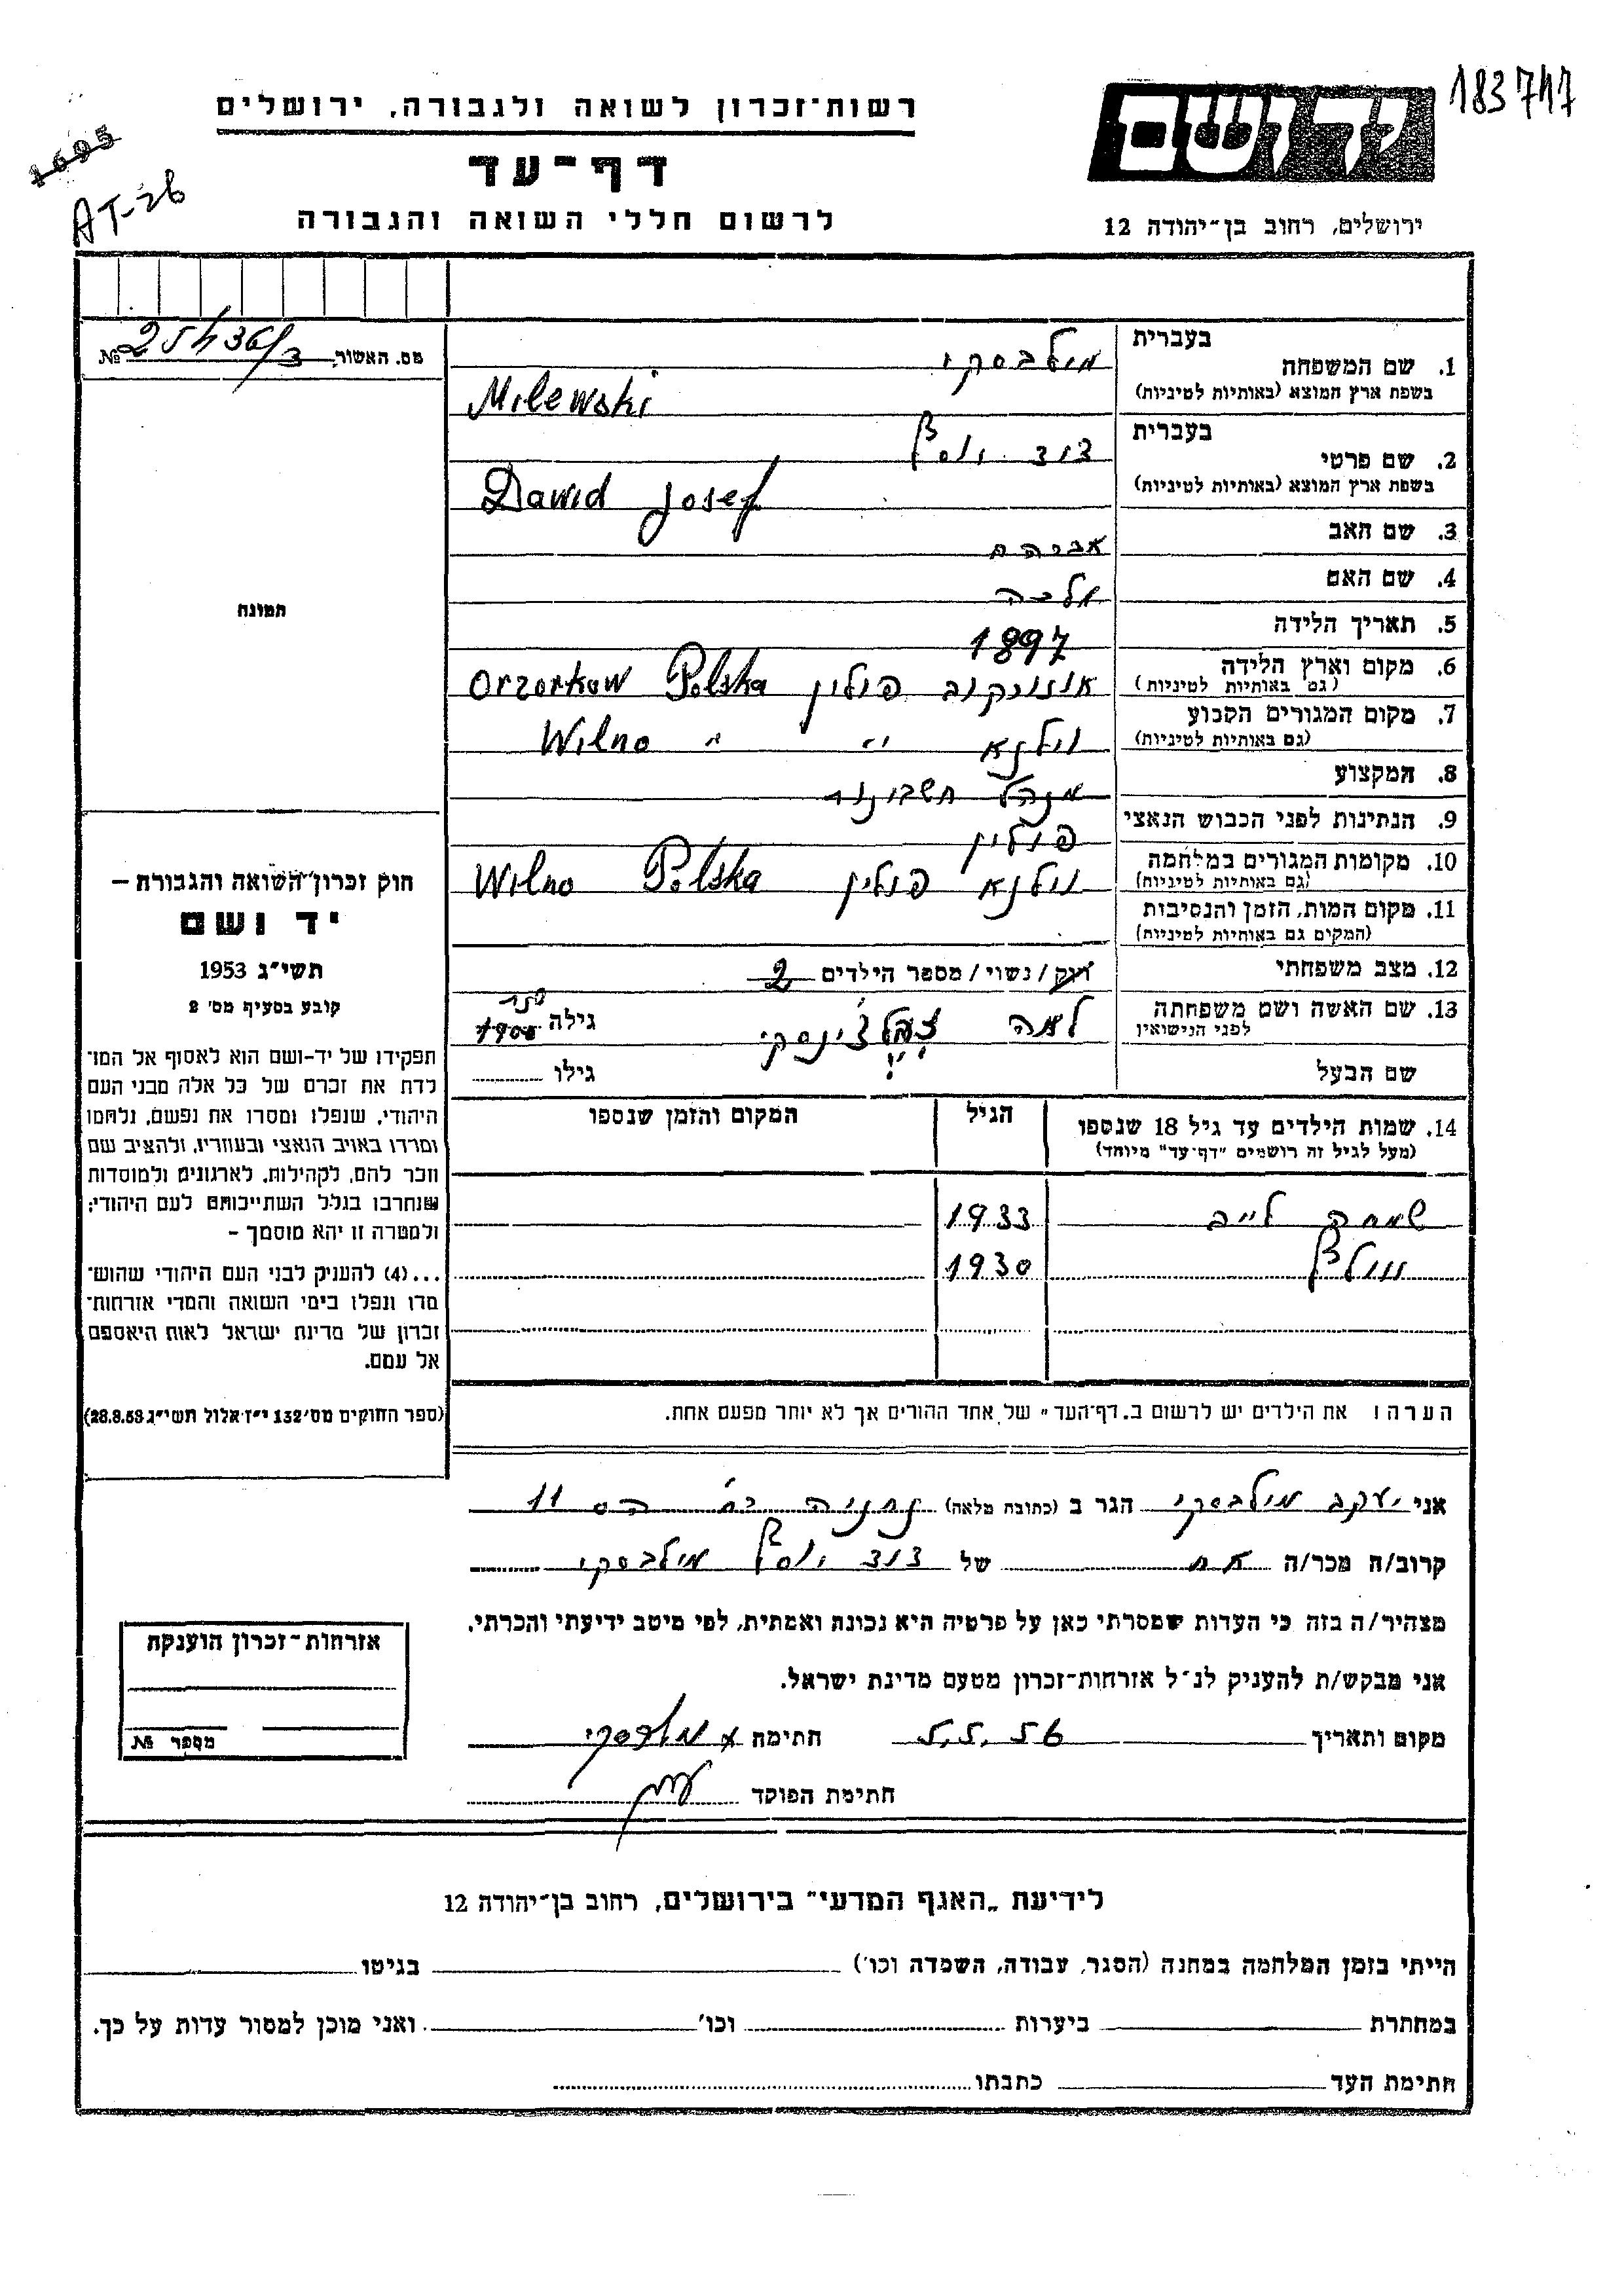 183747
יד ושם
רשות־זכרון לשואה ולגבורה, ירושלים
1695
דף־עד
AT-26
לרשום חללי השואה והגבורה
ירושלים, רחוב בן־יהודה 12
מס. האשור № 25436/3
1. שם המשפחה בעברית מילבסקי
בשפת ארץ המוצא (באותיות לטיניות) Milewski
2. שם פרטי בעברית דוד יוסף
בשפת ארץ המוצא (באותיות לטיניות) Dawid Josef
3. שם האב אברהם
4. שם האם
5. תאריך הלידה 1897
6. מקום וארץ הלידה (גם באותיות לטיניות) אוזורקוב פולין Orzorkow Polska
7. מקום המגורים הקבוע (גם באותיות לטיניות) וילנא " Wilno "
8. המקצוע מנהל חשבונות
9. הנתינות לפני הכבוש הנאצי פולין
10. מקומות המגורים במלחמה (גם באותיות לטיניות) וילנא פולין Wilno Polska
11. מקום המות, הזמן והנסיבות (המקום גם באותיות לטיניות)
12. מצב משפחתי רווק/נשוי/מספר הילדים 2
13. שם האשה ושם משפחתה לפני הנישואין לאה גילה
שם הבעל גילו
14. שמות הילדים עד גיל 18 שנספו הגיל המקום והזמן שנספו
(מעל לגיל זה רושמים "דף־עד" מיוחד)
שמחה לייב 1933
וולף 1930
הערה: את הילדים יש לרשום ב„דף־העד" של אחד ההורים אך לא יותר מפעם אחת.
תמונה
חוק זכרון השואה והגבורה –
יד ושם
תשי״ג 1953
קובע בסעיף מס׳ 2
תפקידו של יד־ושם הוא לאסוף אל המו־
לדת את זכרם של כל אלה מבני העם
היהודי, שנפלו ומסרו את נפשם, נלחמו
ומרדו באויב הנאצי ובעוזריו, ולהציב שם
וזכר להם, לקהילות, לארגונים ולמוסדות
שנחרבו בגלל השתייכותם לעם היהודי;
ולמטרה זו יהא מוסמך –
...(4) להעניק לבני העם היהודי שהוש־
מדו ונפלו בימי השואה והמרי אזרחות־
זכרון של מדינת ישראל לאות היאספם
אל עמם.
(ספר החוקים מס׳ 132 י״ז אלול תשי״ג 28.8.53)
אני יעקב מילבסקי הגר ב (כתובת מלאה) נתניה 11
קרוב/ה מכר/ה אח של דוד יוסף מילבסקי
מצהיר/ה בזה כי העדות שמסרתי כאן על פרטיה היא נכונה ואמתית, לפי מיטב ידיעתי והכרתי.
אני מבקש/ת להעניק לנ״ל אזרחות־זכרון מטעם מדינת ישראל.
מקום ותאריך 5.5.56 חתימה
חתימת הפוקד
אזרחות־זכרון הוענקה
מספר №
לידיעת „האגף המדעי" בירושלים, רחוב בן־יהודה 12
הייתי בזמן המלחמה במחנה (הסגר, עבודה, השמדה וכו׳) בגיטו
במחתרת ביערות וכו׳ ואני מוכן למסור עדות על כך.
חתימת העד כתבתו